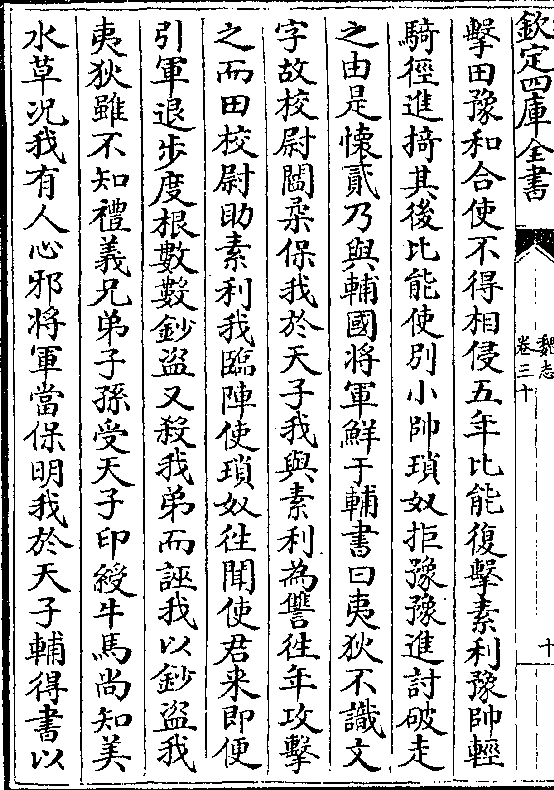 欽定四庫全書
魏志
卷三十
十
擊田豫和合使不得相侵五年比能復擊素利豫帥輕
騎徑進掎其後比能使别小帥瑣奴拒豫豫進討破走
之由是懷貳乃與輔國將軍鮮于輔書曰夷狄不識文
字故校尉閻柔保我於天子我與素利為讐往年攻擊
之而田校尉助素利我臨陣使瑣奴往聞使君来即便
引軍退步度根數數鈔盜又殺我弟而誣我以鈔盜我
夷狄雖不知禮義兄弟子孫受天子印綬牛馬尚知美
水草况我有人心邪將軍當保明我於天子輔得書以